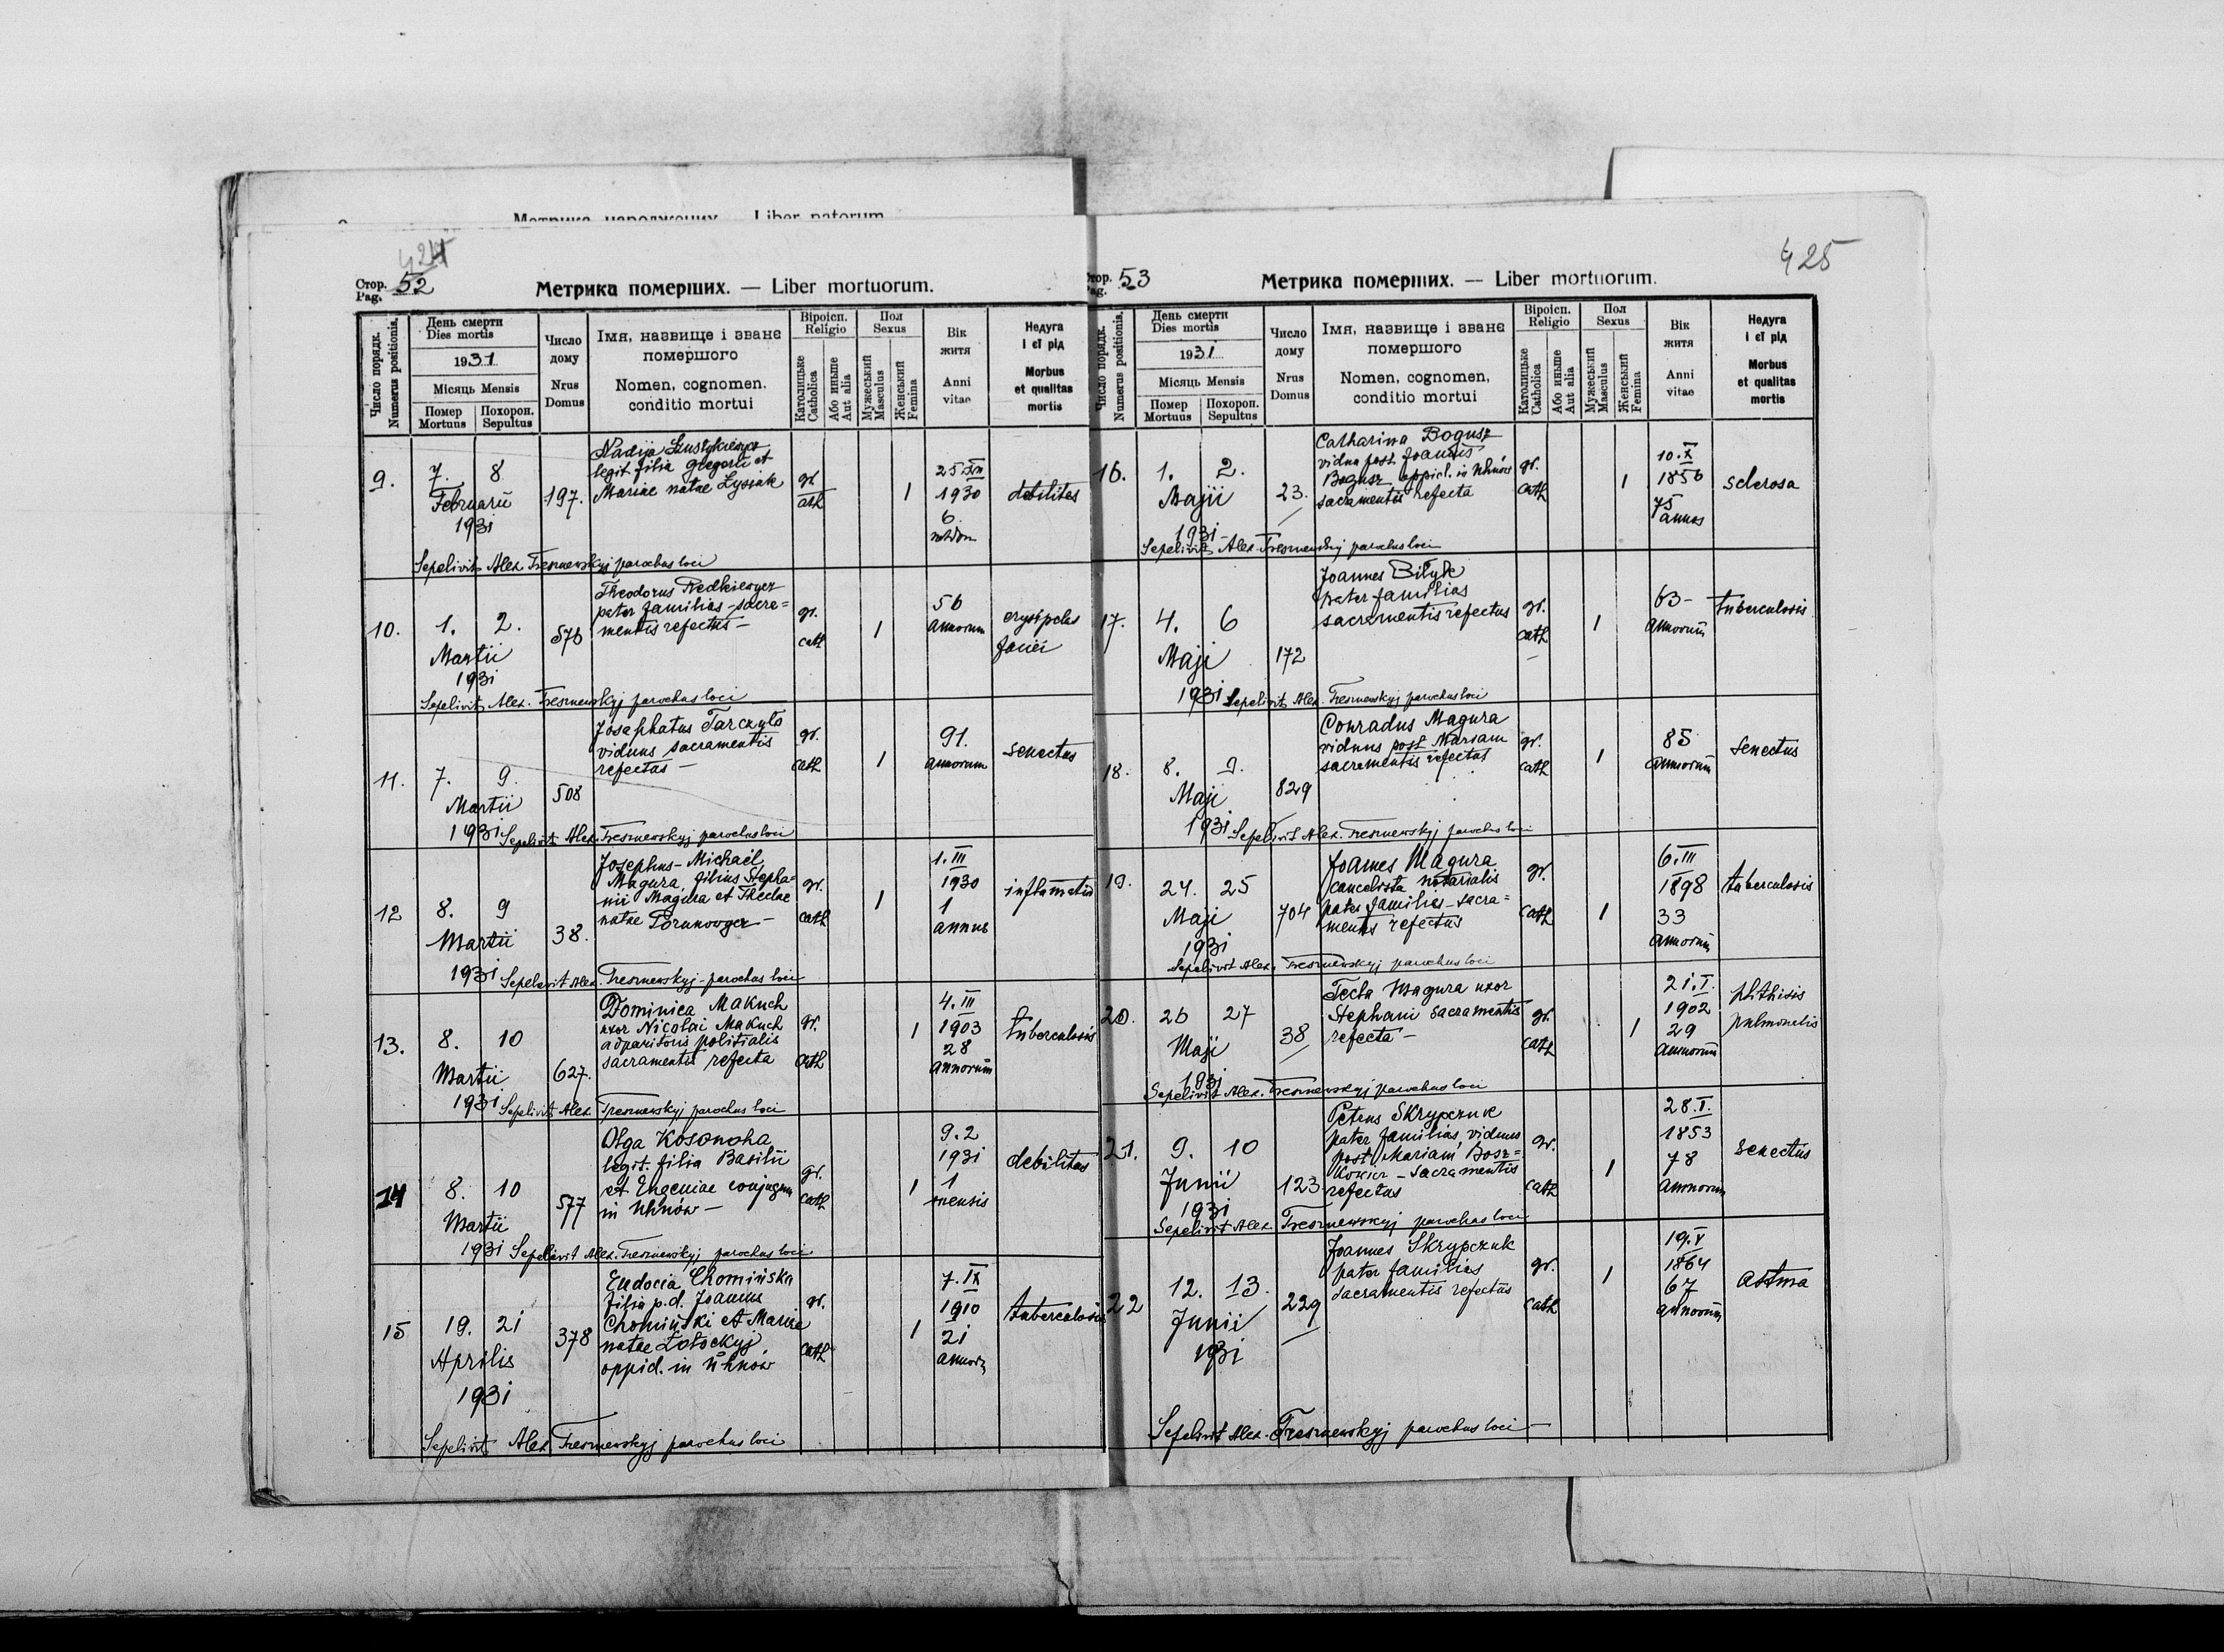 Метрика народжених. — Liber natorum
424
Стор. 52
Pag.
Метрика померших. — Liber mortuorum.
Число порядк.
Numerus positionis.
День смерти
Dies mortis
1931
Місяць Mensis
Помер
Mortuus
Похорон.
Sepultus
Число
дому
Nrus
Domus
Імя, назвище і званє
помершого
Nomen, cognomen,
conditio mortui
Віроісп.
Religio
Католицьке
Catholica
Або иньше
Aut alia
Пол
Sexus
Мужеський
Masculus
Женський
Femina
Вік
житя
Anni
vitae
Недуга
і єї рід
Morbus
et qualitas
mortis
9. 7. 8
Februarii
1931
197.
Nadija
legit. filia Gregorii et
Mariae natae Łysiak
gr.
cath
1
25.XII
1930
6
debilitas
Sepelivit Alex Tresznewskyj parochus loci
10. 1. 2.
Martii
1931
576
Theodorus Fedkiewycz
pater familias – sacra=
mentis refectus –
gr.
cath
1
56
annorum
erysipelas
faciei
Sepelivit Alex. Tresznewskyj parochus loci
11. 7. 9.
Martii
1931
508
Josaphatus Tarczyło
viduus sacramentis
refectus –
gr.
cath
1
91.
annorum
senectus
Sepelivit Alex. Tresznewskyj parochus loci
12 8. 9
Martii
1931
38.
Josephus-Michaël
Magura, filius Stepha=
nii Magura et Theclae
natae
gr.
cath
1
1.III
1930
1
annus
inflamatio
Sepelivit Alex. Tresznewskyj – parochus loci
13. 8. 10
Martii
1931
627.
Dominica Makuch
uxor Nicolai Makuch
adparitoris politialis
sacramentis refecta
gr.
cath
1
4.III
1903
28
annorum
tuberculosis
Sepelivit Alex. Tresznewskyj parochus loci
14 8. 10
Martii
1931
577
Olga Kosonoha
legit. filia Basilii
et Eugeniae conjugum
in Uhnów –
gr.
cath
1
9.2
1931
1
mensis
debilitas
Sepelivit Alex. Tresznewskyj parochus loci
15 19. 21
Aprilis
1931
378
Eudocia Chomińska
filia p.d. Joannis
Chomiński et Mariae
natae Zołockyj
oppid. in Uhnów
gr.
cath
1
7.IX
1910
21
annor.
tuberculosis
Sepelivit Alex Tresznewskyj parochus loci
425
Стор. 53
Pag.
Метрика померших. — Liber mortuorum.
Число порядк.
Numerus positionis.
День смерти
Dies mortis
1931
Місяць Mensis
Помер
Mortuus
Похорон.
Sepultus
Число
дому
Nrus
Domus
Імя, назвище і званє
помершого
Nomen, cognomen,
conditio mortui
Віроісп.
Religio
Католицьке
Catholica
Або иньше
Aut alia
Пол
Sexus
Мужеський
Masculus
Женський
Femina
Вік
житя
Anni
vitae
Недуга
і єї рід
Morbus
et qualitas
mortis
16. 1. 2.
Maji
1931
23.
Catharina Bogusz
vidua post Joannis
Bogusz oppid. in Uhnów
sacramentis refecta
gr.
cath
1
10.X
1856
75
annos
sclerosa
Sepelivit Alex. Tresznewskyj parochus loci
17. 4. 6
Maji
1931
172
Joannes Biłyk
pater familias
sacramentis refectus
gr.
cath
1
63–
annorum
tuberculosis
Sepelivit Alex. Tresznewskyj parochus loci
18. 8. 9.
Maji
1931
829
Conradus Magura
viduus post Mariam
sacramentis refectus
gr.
cath
1
85
annorum
senectus
Sepelivit Alex. Tresznewskyj parochus loci
19. 24. 25
Maji
1931
704
Joannes Magura
cancelista notarialis
pater familias – sacra=
mentis refectus
gr.
cath
1
6.III
1898
33
annorum
tuberculosis
Sepelivit Alex. Tresznewskyj parochus loci
20. 26 27
Maji
1931
38
Tecla Magura uxor
Stephani sacramentis
refecta –
gr.
cath
1
21.I.
1902
29
annorum
phthisis
pulmonalis
Sepelivit Alex. Tresznewskyj parochus loci
21. 9. 10
Junii
1931
123
Petrus Skrypczuk
pater familias, viduus
post Mariam Bosz=
– sacramentis
refectus
gr.
cath
1
28.I.
1853
78
annorum
senectus
Sepelivit Alex. Tresznewskyj parochus loci
22 12. 13.
Junii
1931
229
Joannes Skrypczuk
pater familias
sacramentis refectus
gr.
cath
1
19.V
1864
67
annorum
astma
Sepelivit Alex. Tresznewskyj parochus loci –